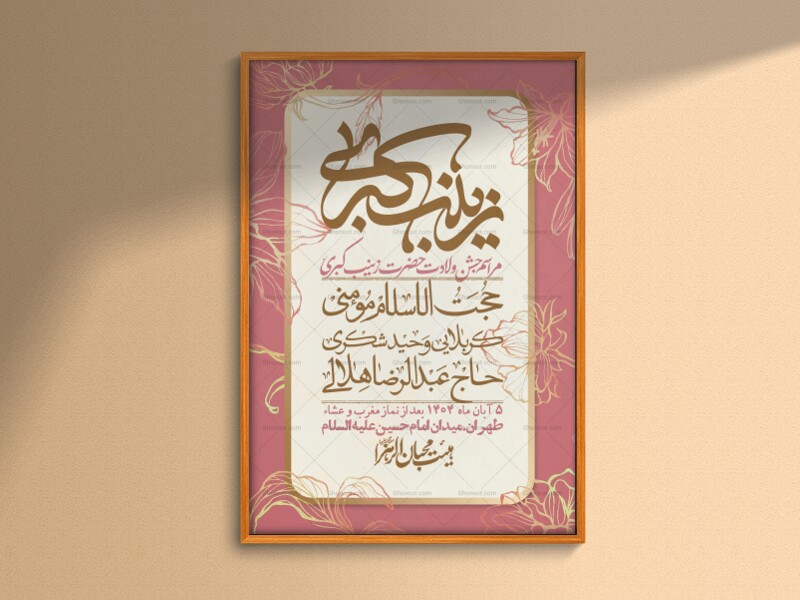 زینب کبری
مراسم جشن ولادت حضرت زینب کبری
حجت الاسلام مؤمنی
کربلایی وحید شکری
حاج عبدالرضا هلالی
۵ آبان ماه ۱۴۰۴ بعد از نماز مغرب و عشاء
طهران، میدان امام حسین علیه السلام
هیئت محبان الزهرا